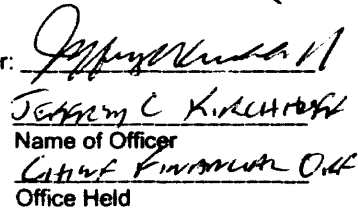 r:
JEFFREY C KIRCHHOFF
Name of Officer
CHIEF FINANCIAL
Office Held